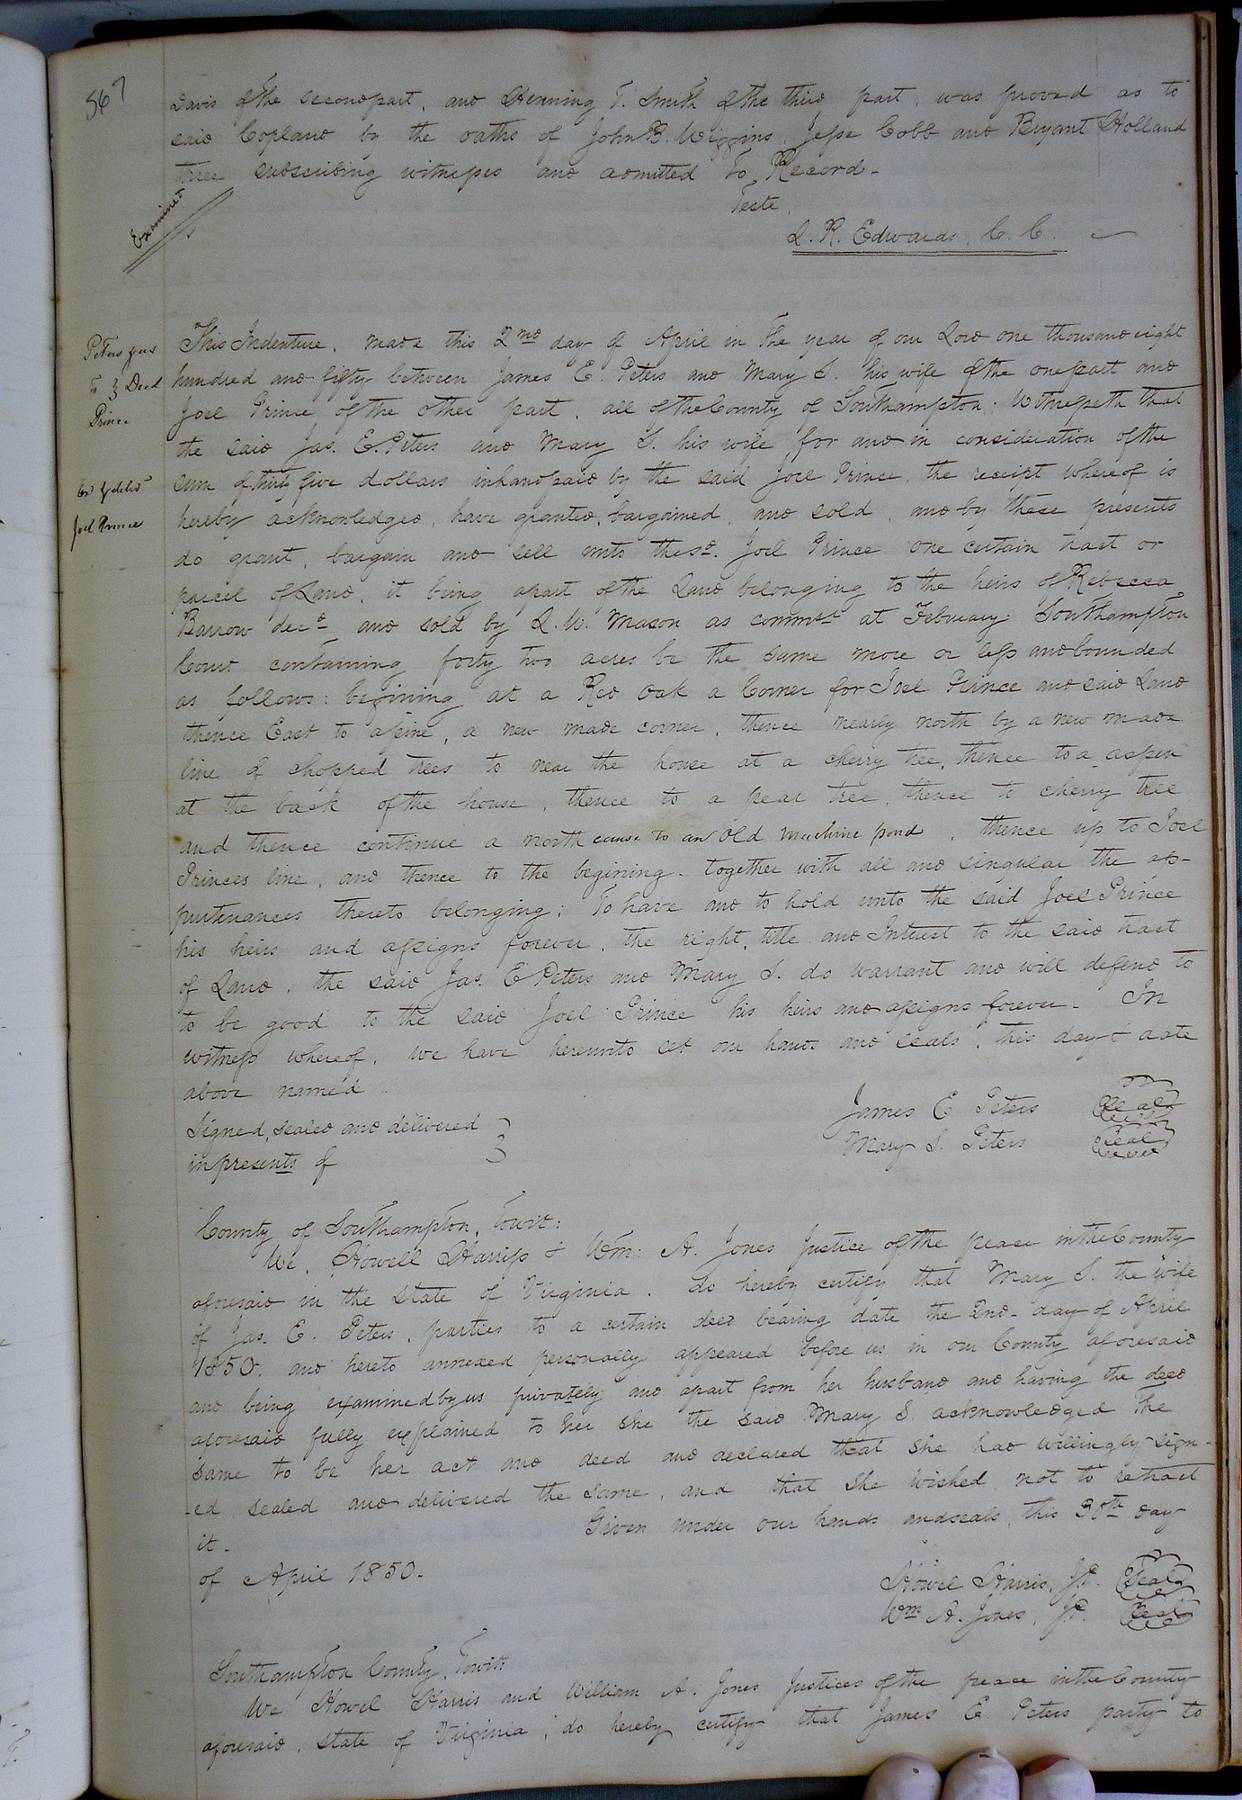 567
Davis of the second part, and Henning T. Smith of the third part, was proved as to
said Copland by the oaths of John B. Wiggins, Jesse Cobb and Bryant Holland
three subscribing witnesses and admitted to Record-
Teste,
L. R. Edwards, C. C.
Examined
Peters &
To } Deed
Prince
Joel Prince
This Indenture, made this 2nd day of April in the year of our Lord one thousand eight
hundred and fifty between James E. Peters and Mary S. his wife of the one part and
Joel Prince of the other part, all of the County of Southampton; Witnesseth that
the said Jas. E. Peters and Mary S. his wife for and in consideration of the
sum of thirty five dollars in hand paid by the said Joel Prince, the receipt whereof is
hereby acknowledged, have granted, bargained, and sold, and by these presents
do grant, bargain and sell unto the sd. Joel Prince one certain tract or
parcel of Land, it being a part of the Land belonging to the heirs of Rebecca
Barrow decd and sold by L. W. Mason as commr at February Southampton
Court containing forty two acres be the same more or less and bounded
as follows: begining at a Red Oak a Corner for Joel Prince and said Land
thence East to a pine, a new made corner, thence nearly north by a new made
line of chopped trees to near the house at a cherry tree, thence to a aspen
at the back of the house, thence to a pear tree, thence to cherry tree
and thence continue a north course to an old machine pond, thence up to Joel
Princes line, and thence to the begining. together with all and singular the ap-
purtenances thereto belonging; To have and to hold unto the said Joel Prince
his heirs and assigns forever, the right, title and Interest to the said tract
of Land, the said Jas. E Peters and Mary S. do warrant and will defend to
to be good to the said Joel Prince his heirs and assigns forever- In
witness whereof, we have hereunto set our hands and seals, this day & date
above named
James E Peters Seal
Signed, sealed and delivered }
Mary S. Peters Seal
in presents of
County of Southampton, towit:
We, Howell Harriss & Wm: A. Jones Justice of the peace in the County
aforesaid in the State of Virginia, do hereby certify that Mary S. the wife
of Jas. E. Peters, parties to a certain deed bearing date the 2nd- day of April
1850, and hereto annexed personally appeared before us in our County aforesaid
and being examined by us privately and apart from her husband and having the deed
aforesaid fully explained to her she the said Mary S. acknowledged the
same to be her act and deed and declared that she had willingly sign-
-ed, sealed and delivered the same, and that she wished not to retract
it. Given under our hands and seals, this 30th day
of April 1850.
Howel Harris, J.P. Seal
Wm A. Jones, J.P. Seal
Southampton County, Towit:
We Howel Harris and William A. Jones Justices of the peace in the County
aforesaid, State of Virginia, do hereby certify that James E. Peters party to